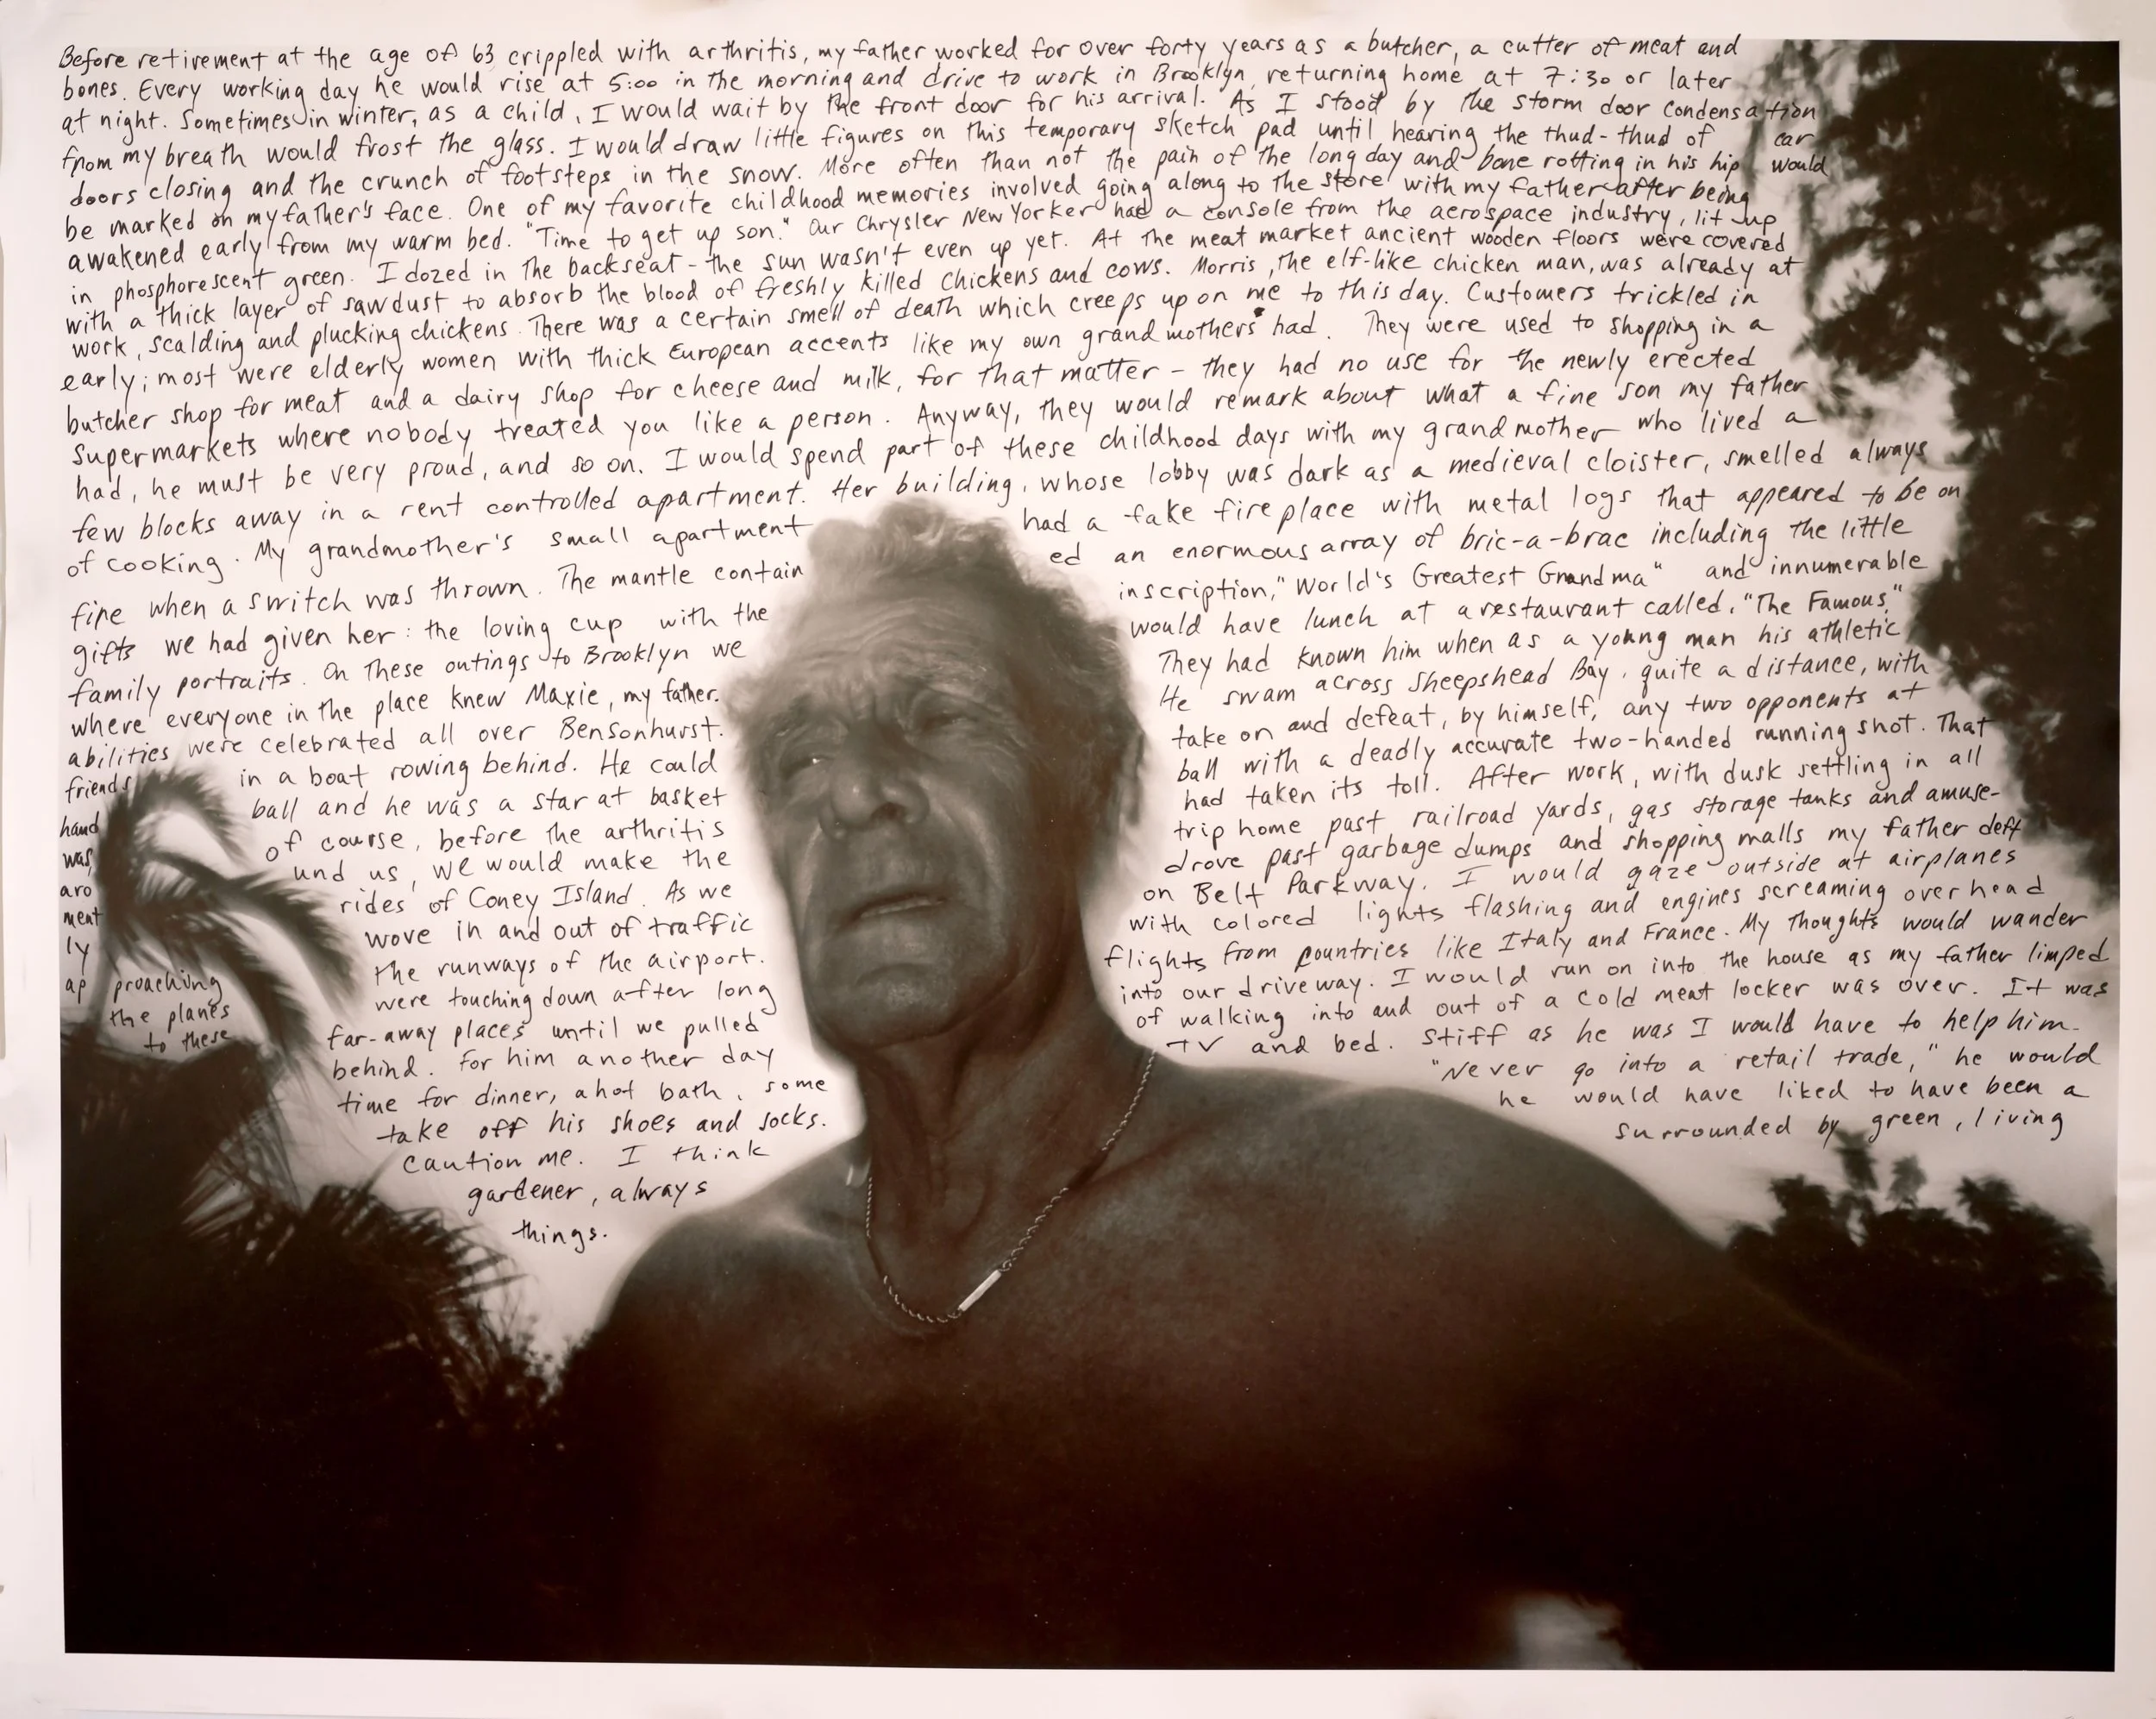 Before retirement at the age of 63 crippled with arthritis, my father worked for over forty years as a butcher, a cutter of meat and
bones. Every working day he would rise at 5:00 in the morning and drive to work in Brooklyn, returning home at 7:30 or later
at night. Sometimes in winter, as a child, I would wait by the front door for his arrival. As I stood by the storm door condensation
from my breath would frost the glass. I would draw little figures on this temporary sketch pad until hearing the thud-thud of car
doors closing and the crunch of footsteps in the snow. More often than not the pain of the long day and bone rotting in his hip would
be marked on my father's face. One of my favorite childhood memories involved going along to the store with my father after being
awakened early from my warm bed. "Time to get up son." Our Chrysler New Yorker had a console from the aerospace industry, lit up
in phosphorescent green. I dozed in the backseat - the sun wasn't even up yet. At the meat market ancient wooden floors were covered
with a thick layer of sawdust to absorb the blood of freshly killed chickens and cows. Morris, the elf-like chicken man, was already at
work, scalding and plucking chickens. There was a certain smell of death which creeps up on me to this day. Customers trickled in
early; most were elderly women with thick European accents like my own grandmothers had. They were used to shopping in a
butcher shop for meat and a dairy shop for cheese and milk, for that matter - they had no use for the newly erected
Supermarkets where nobody treated you like a person. Anyway, they would remark about what a fine son my father
had, he must be very proud, and so on. I would spend part of these childhood days with my grandmother who lived a
few blocks away in a rent controlled apartment. Her building, whose lobby was dark as a medieval cloister, smelled always
of cooking. My grandmother's small apartment had a fake fireplace with metal logs that appeared to be on
fire when a switch was thrown. The mantle contain ed an enormous array of bric-a-brac including the little
gifts we had given her: the loving cup with the inscription, "World's Greatest Grandma" and innumerable
family portraits. On these outings to Brooklyn we would have lunch at a restaurant called, "The Famous,"
where everyone in the place knew Maxie, my father. They had known him when as a young man his athletic
abilities were celebrated all over Bensonhurst. He swam across Sheepshead Bay, quite a distance, with
friends in a boat rowing behind. He could take on and defeat, by himself, any two opponents at
hand ball and he was a star at basket ball with a deadly accurate two-handed running shot. That
was, of course, before the arthritis had taken its toll. After work, with dusk settling in all
aro und us, we would make the trip home past railroad yards, gas storage tanks and amuse-
ment rides of Coney Island. As we drove past garbage dumps and shopping malls my father deft
ly wove in and out of traffic on Belt Parkway. I would gaze outside at airplanes
ap proaching the runways of the airport. with colored lights flashing and engines screaming overhead
the planes were touching down after long flights from countries like Italy and France. My thoughts would wander
to these far-away places until we pulled into our driveway. I would run on into the house as my father limped
behind. For him another day of walking into and out of a cold meat locker was over. It was
time for dinner, a hot bath, some TV and bed. Stiff as he was I would have to help him
take off his shoes and socks. "Never go into a retail trade," he would
caution me. I think he would have liked to have been a
gardener, always surrounded by green, living
things.